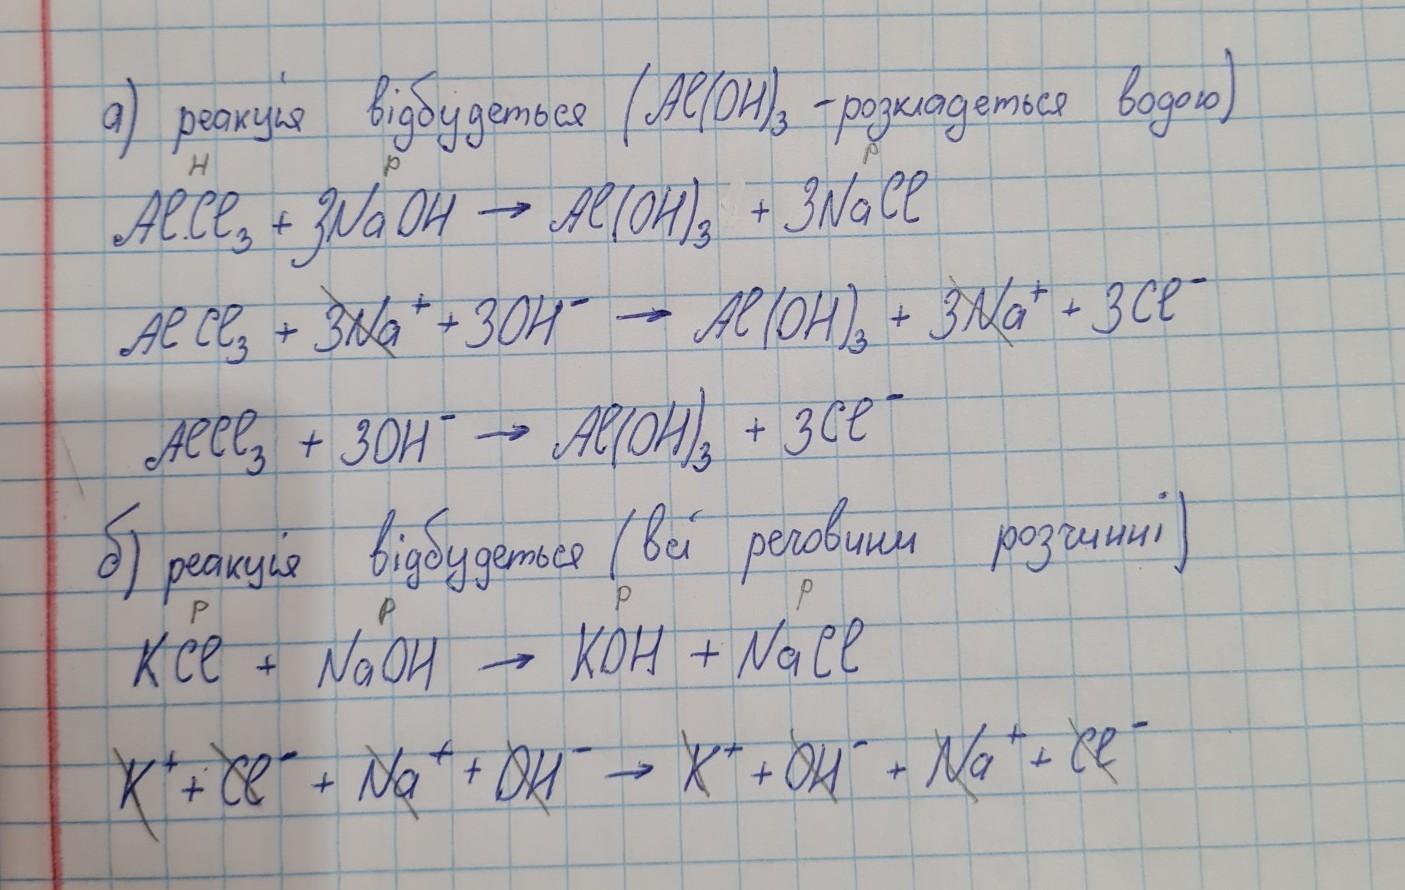 а) реакція відбудеться (Al(OH)₃ - розкладеться водою)
Н Р Р
AlCl₃ + 3NaOH → Al(OH)₃ + 3NaCl
AlCl₃ + 3Na⁺ + 3OH⁻ → Al(OH)₃ + 3Na⁺ + 3Cl⁻
AlCl₃ + 3OH⁻ → Al(OH)₃ + 3Cl⁻
б) реакція відбудеться (всі речовини розчинні)
Р Р Р Р
KCl + NaOH → KOH + NaCl
K⁺ + Cl⁻ + Na⁺ + OH⁻ → K⁺ + OH⁻ + Na⁺ + Cl⁻